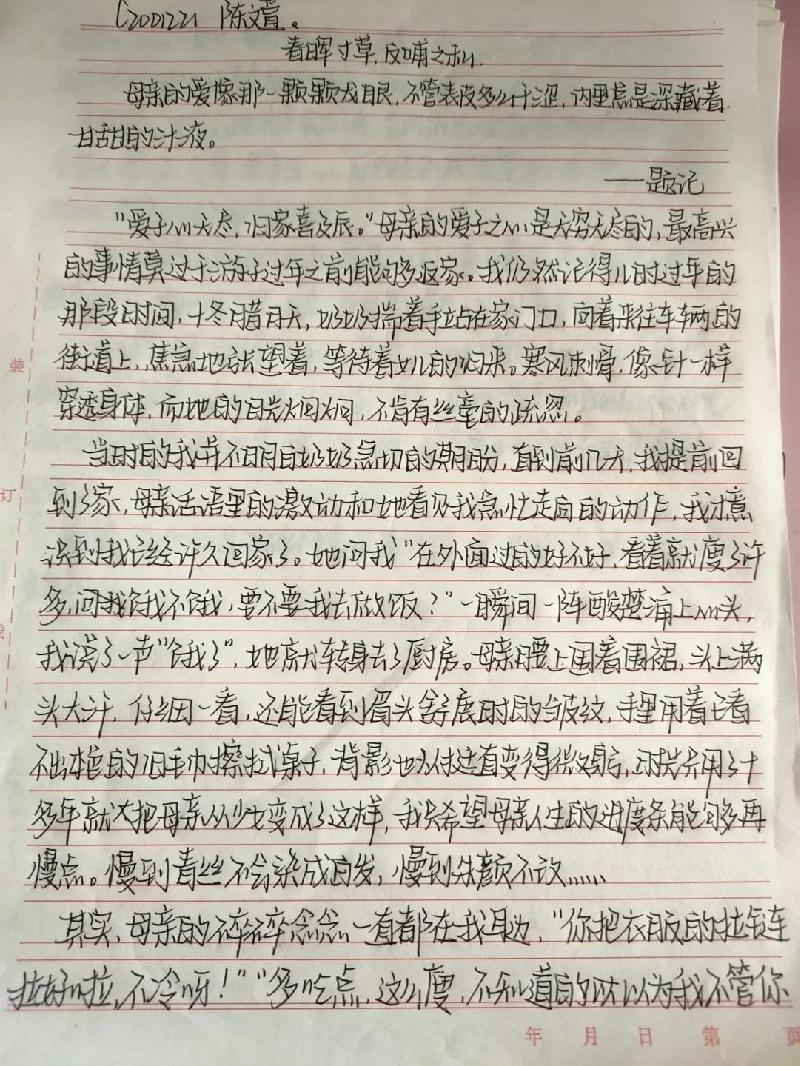 C2001221 陈文萱。
春晖寸草,反哺之私
母亲的爱像那一颗颗龙眼,不管表皮多么干涩,内里总是深藏着
甘甜的汁液。
——题记
“爱子心无尽,归家喜及辰。”母亲的爱子之心是无穷无尽的,最高兴
的事情莫过于游子过年之前能够返家。我仍然记得儿时过年的
那段时间,十冬腊月天,奶奶揣着手站在家门口,向着来往车辆的
街道上,焦急地张望着,等待着女儿的归来。寒风刺骨,像针一样
穿透身体,而她的目光炯炯,不肯有丝毫的疏忽。
当时的我并不明白奶奶急切的期盼,直到前几天,我提前回
到了家,母亲话语里的激动和她看见我急忙走向的动作,我才意
识到我已经许久回家了。她问我“在外面过的好不好,看着就瘦了许
多,问我饿不饿我,要不要我去做饭?”一瞬间一阵酸楚涌上心头,
我说了一声“饿了”,她就转身去了厨房。母亲腰上围着围裙,头上满
头大汗,仔细一看,还能看到眉头舒展时的皱纹,手里用着已看
不出本色的旧毛巾擦拭桌子,背影也从挺直变得微弯,时光只用了十
多年就把母亲从少女变成了这样,我只希望母亲人生的进度条能够再
慢点。慢到青丝不会染成白发,慢到朱颜不改……
其实,母亲的碎碎念念一直都在我耳边,“你把衣服的拉链
拉好啦,不冷呀!”“多吃点,这么瘦,不知道的以为我不管你
装
订
年 月 日 第 页